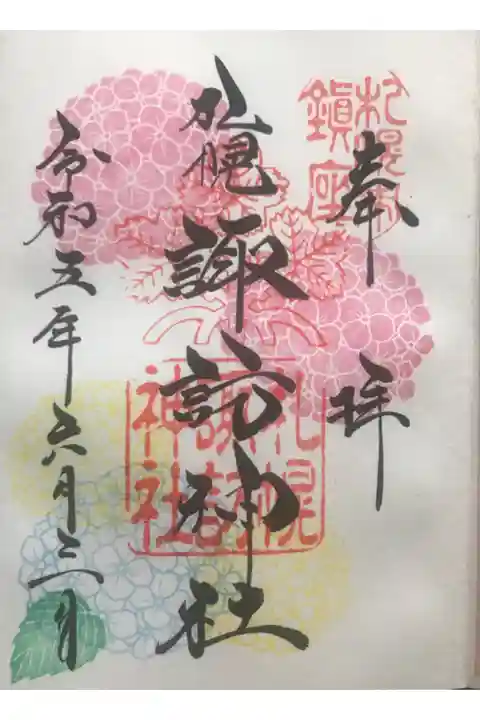 奉拝
札幌
鎮座
札幌諏訪神社
札幌
諏訪
神社
令和五年六月三日